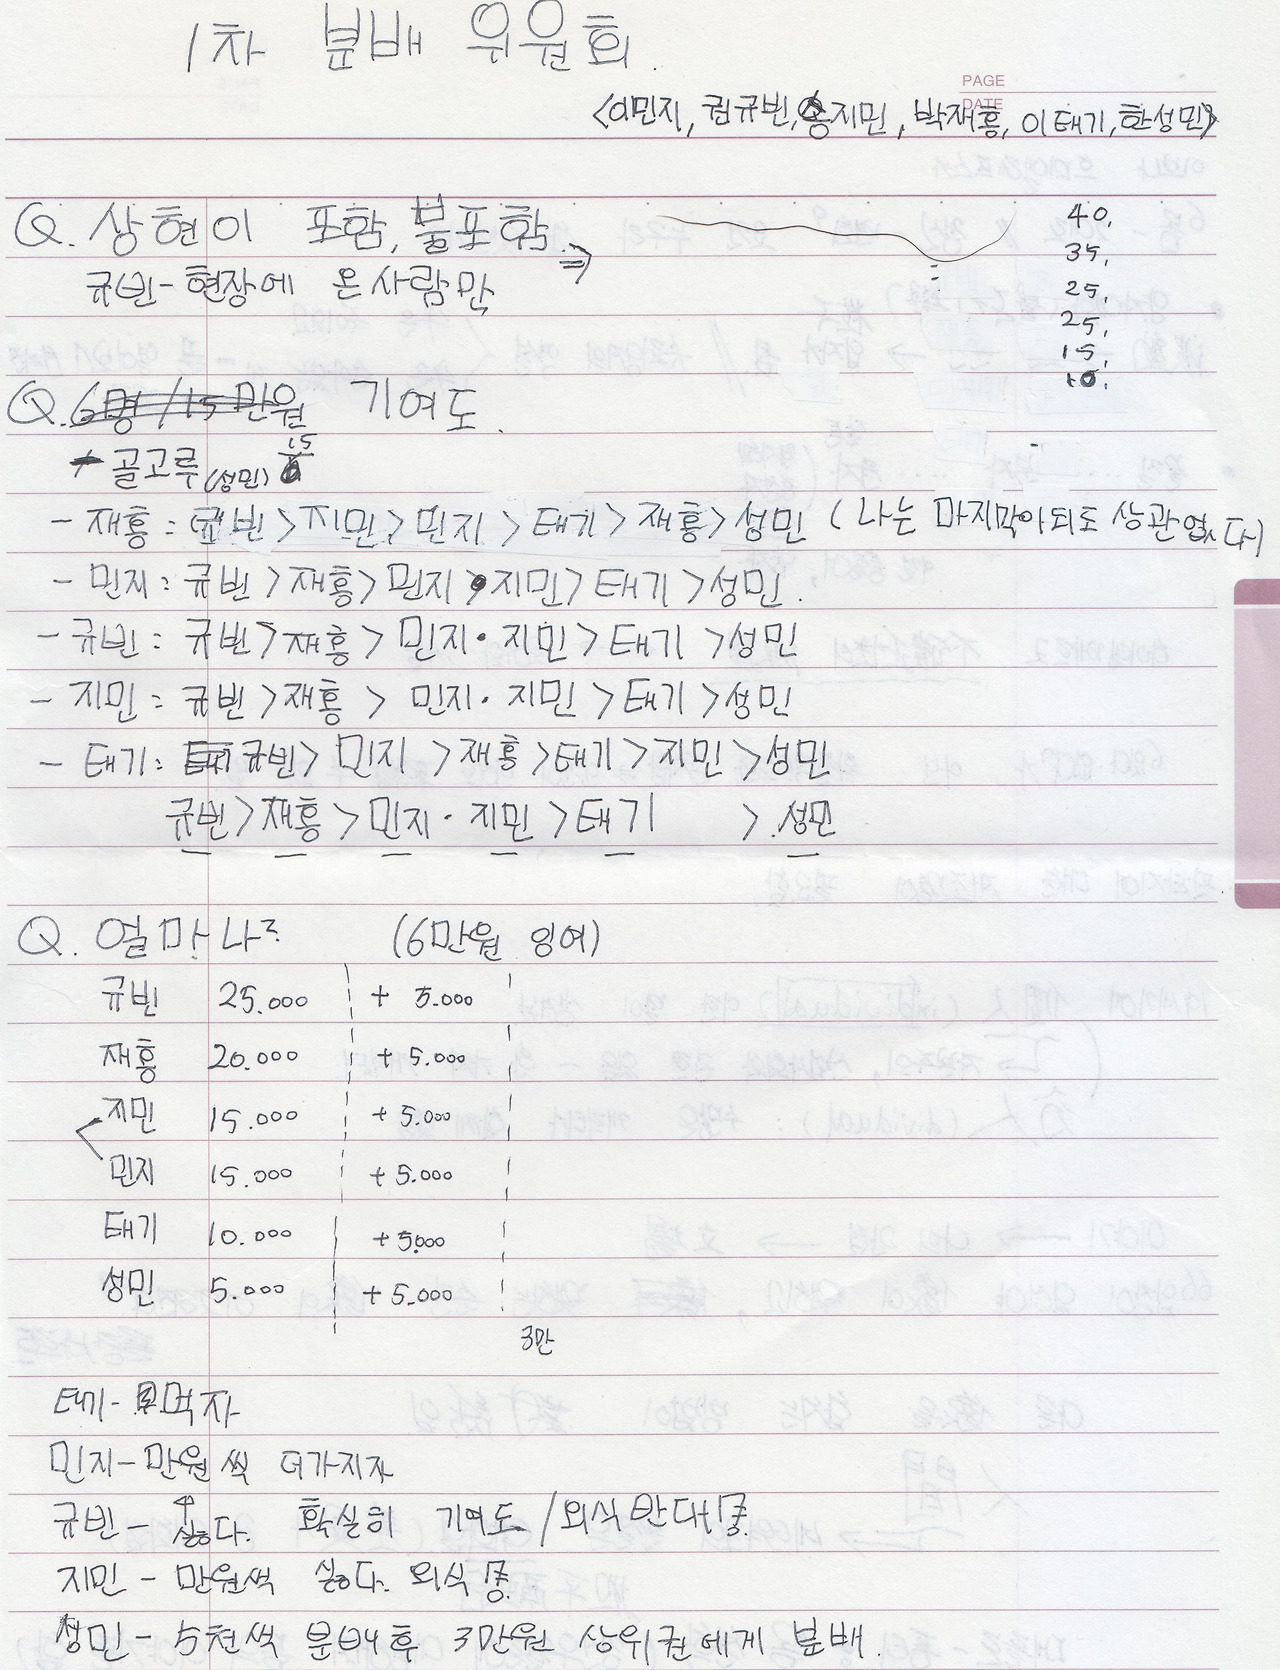 1차 분배 위원회.
PAGE
DATE
<이민지, 권규빈, 송지민, 박재흥, 이태기, 한성민>
Q. 상현이 포함, 불포함 ⇒
규빈-현장에 온사람만
40,
35,
25,
25,
15,
10,
Q. 6명/15만원 기여도.
골고루 (성민) 15/6
- 재흥 : 규빈>지민>민지>태기>재흥>성민 (나는 마지막이되도 상관없다)
- 민지 : 규빈>재흥>민지>지민>태기>성민.
- 규빈 : 규빈>재흥>민지·지민>태기>성민
- 지민 : 규빈>재흥>민지·지민>태기>성민
- 태기 : 규빈>민지>재흥>태기>지민>성민.
규빈>재흥>민지·지민>태기 >.성민
Q. 얼마나? (6만원 잉여)
규빈 25.000 + 5.000
재흥 20.000 + 5.000
지민 15.000 + 5.000
민지 15.000 + 5.000
태기 10.000 + 5000
성민 5.000 + 5.000
3만
태기- 먹자
민지-만원씩 더가지자
규빈- 싫다. 확실히 기여도/외식반대
지민 - 만원씩 싫다. 외식
성민- 5천씩 분배후 3만원 상위권에게 분배.